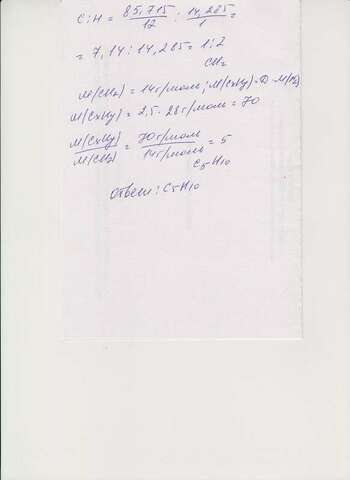 C:H = 85,715/12 : 14,285/1 =
= 7,14 : 14,285 = 1:2
CH₂
M(CH₂) = 14 г/моль; M(CxHy) = D · M(N₂)
M(CxHy) = 2,5 · 28 г/моль = 70
M(CxHy)/M(CH₂) = 70 г/моль/14 г/моль = 5
C₅H₁₀
Ответ: C₅H₁₀